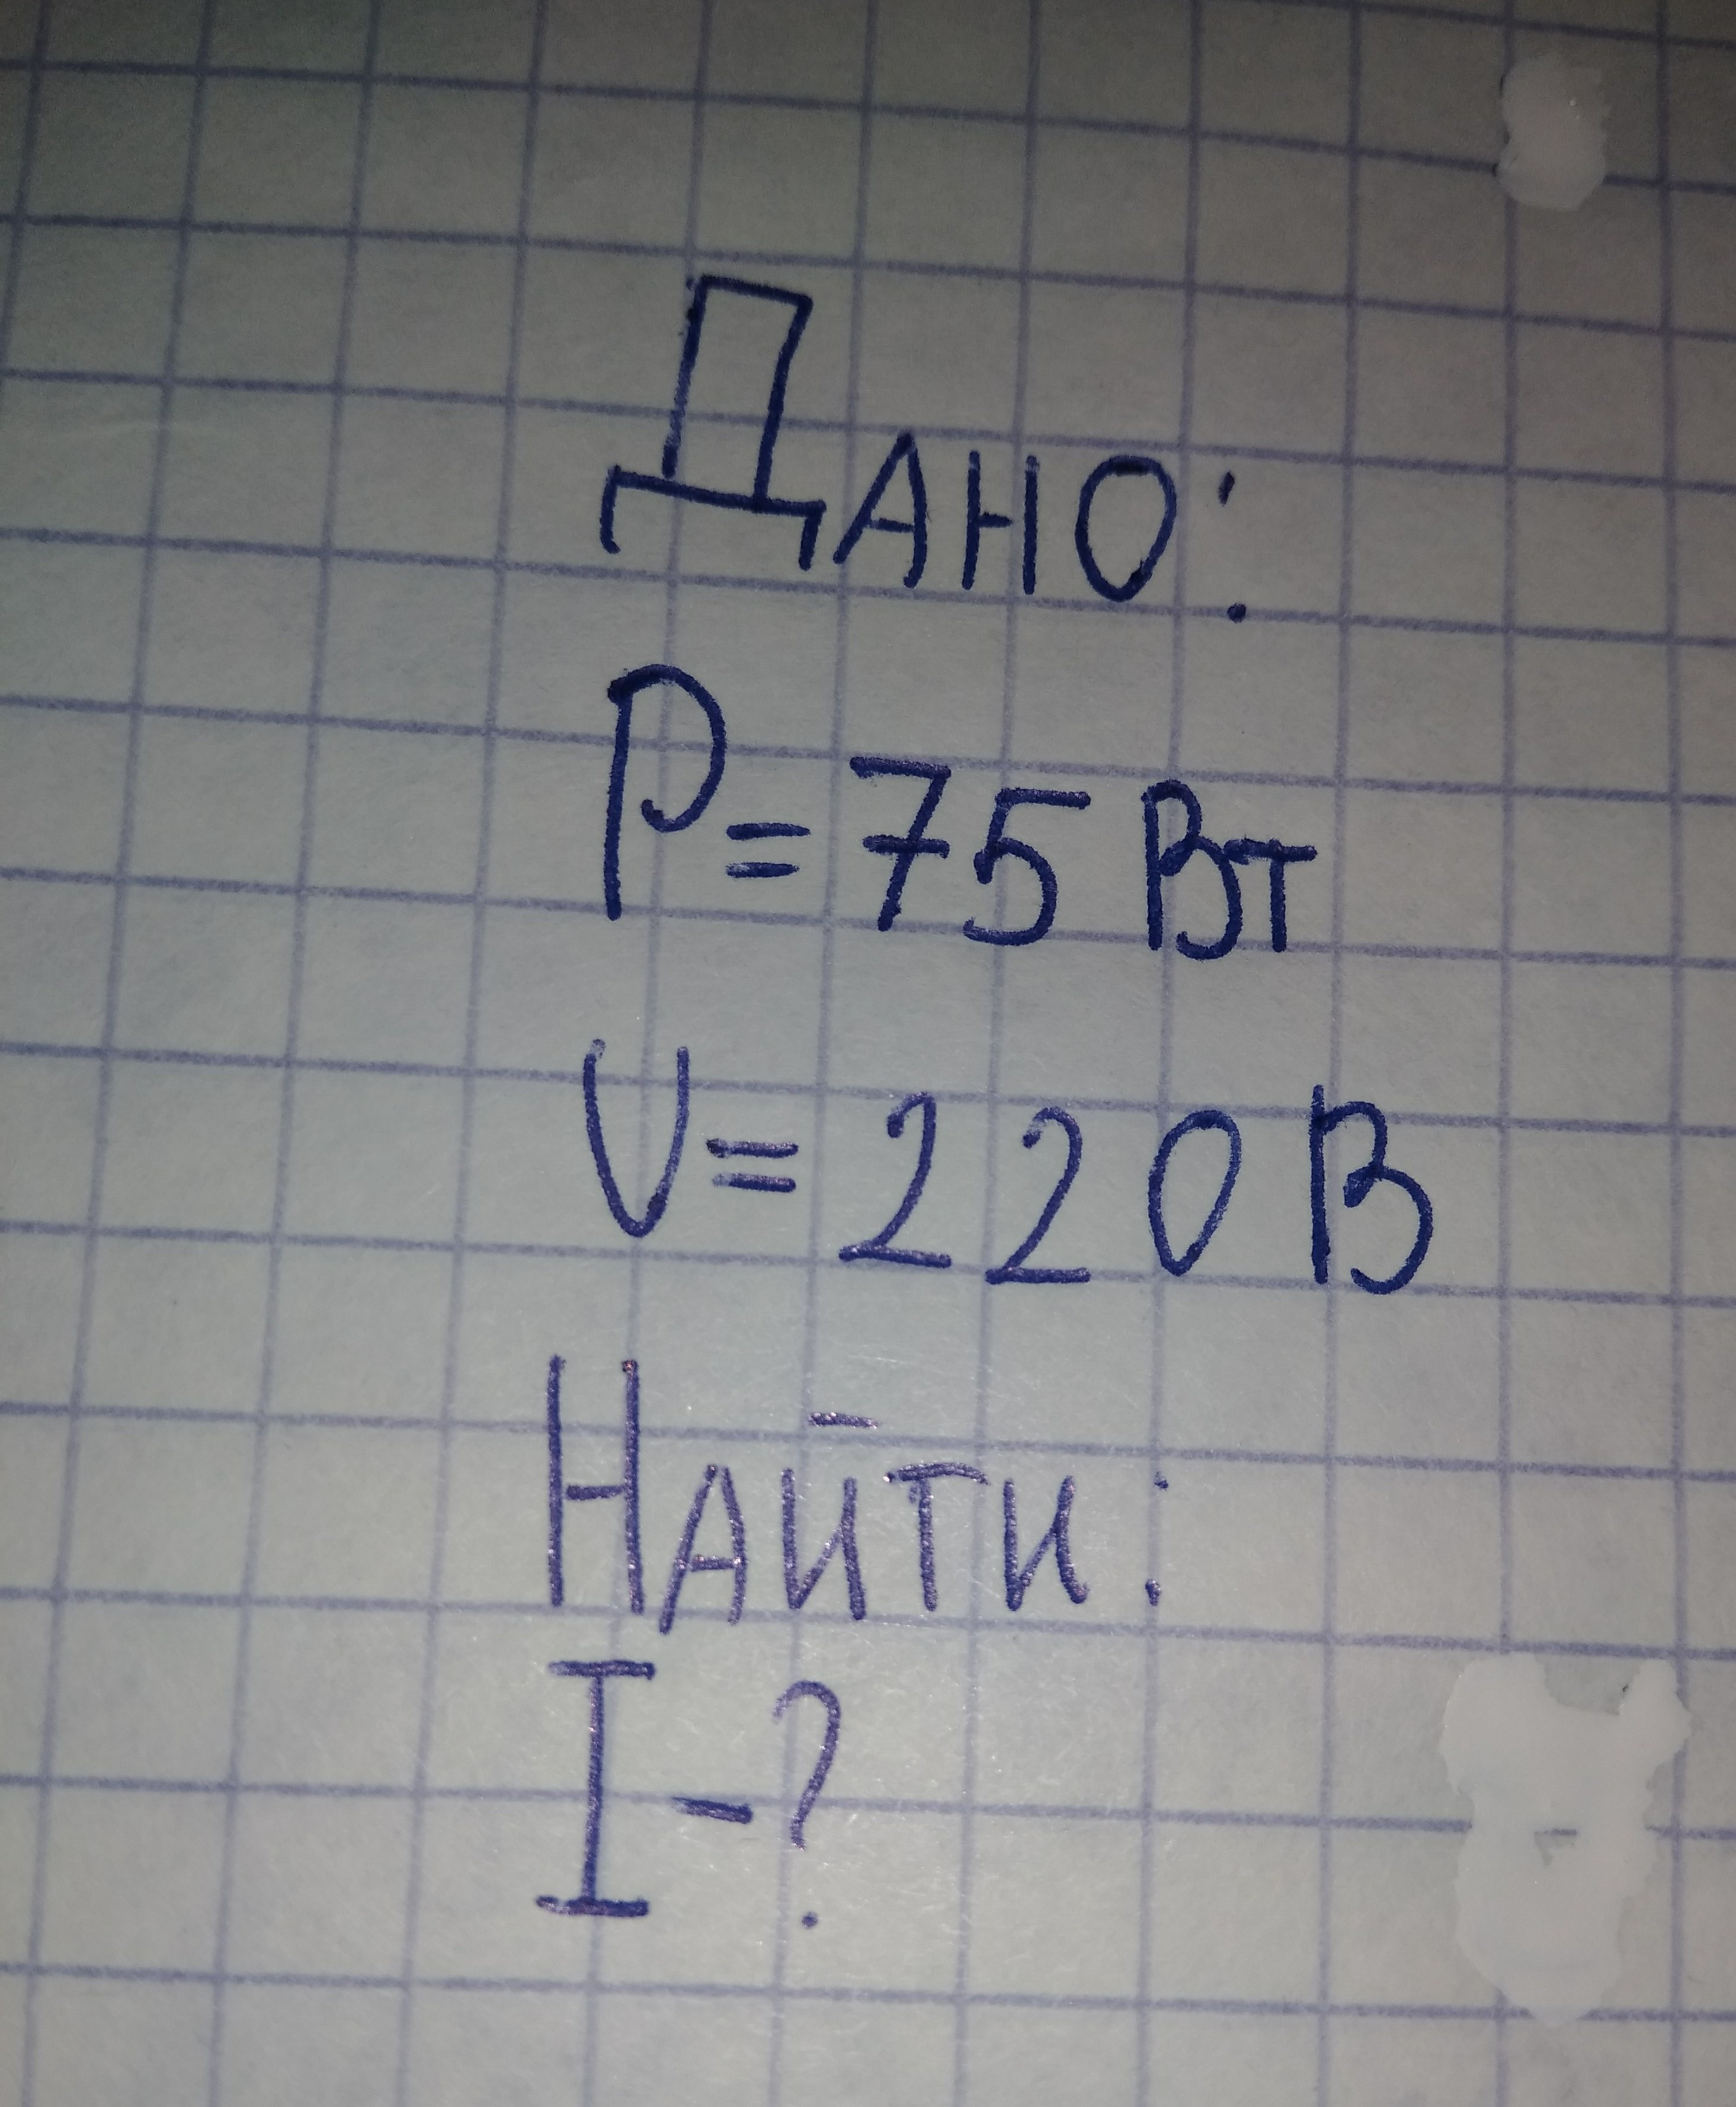 Дано:
P=75 Вт
U=220 В
Найти:
I-?